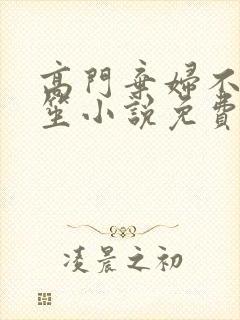 高門棄婦不
笙小説免費
凌晨之初